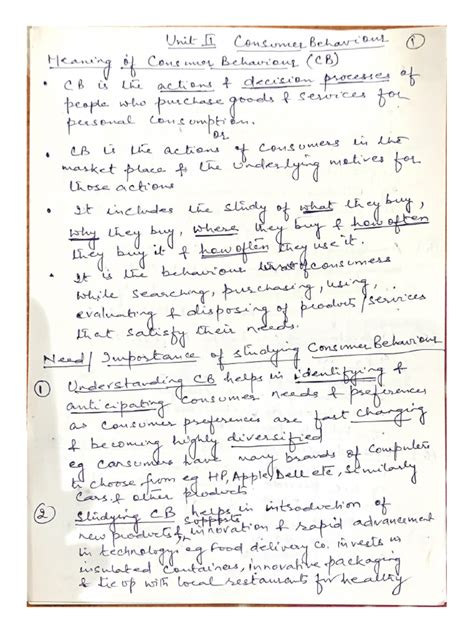 Unit II Consumer Behaviour ①
Meaning of Consumer Behaviour (CB)
• CB is the actions & decision processes of
people who purchase goods & services for
personal consumption.
or
• CB is the actions of consumers in the
market place & the underlying motives for
those actions
• It includes the study of what they buy,
why they buy, where they buy & how often
they buy it & how often they use it.
• It is the behaviour of consumers
while searching, purchasing, using,
evaluating & disposing of products/services
that satisfy their needs.
Need/Importance of studying Consumer Behaviour
① Understanding CB helps in identifying &
anticipating consumer needs & preferences
as consumer preferences are fast changing
& becoming highly diversified
eg consumers have many brands of computers
to choose from eg HP, Apple, Dell etc, similarly
cars & other products
② Studying CB helps in introduction of
new products & supports innovation & rapid advancement
in technology. eg food delivery co. invests in
insulated containers, innovative packaging
& tie up with local restaurants for healthy